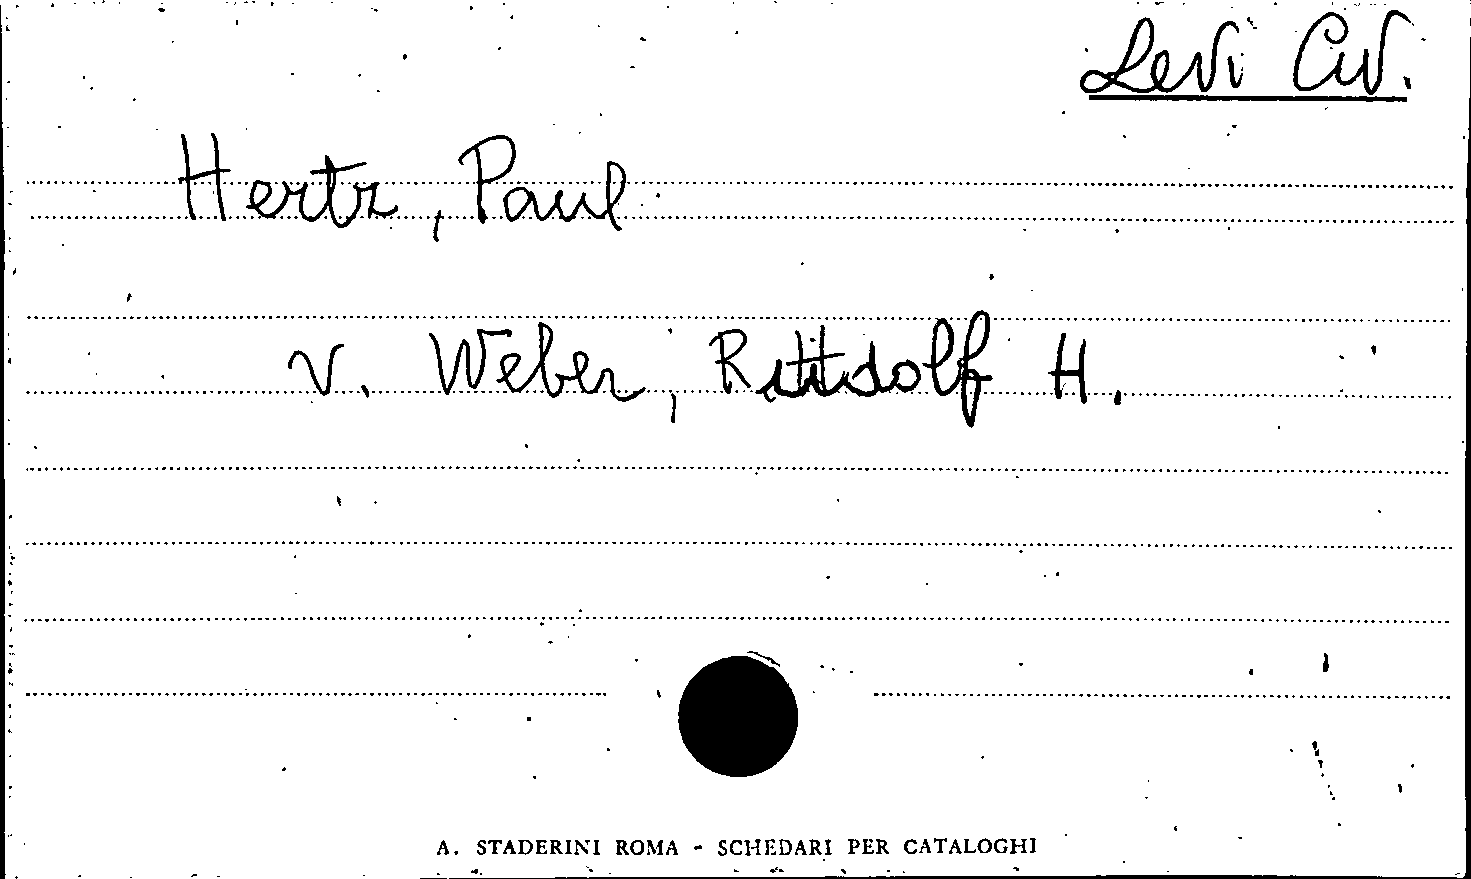 Levi Civ.
Hertz, Paul
v. Weber, H.
A. STADERINI ROMA - SCHEDARI PER CATALOGHI